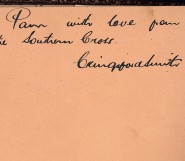 Pam with love from
the Southern Cross.
CKingsfordSmith